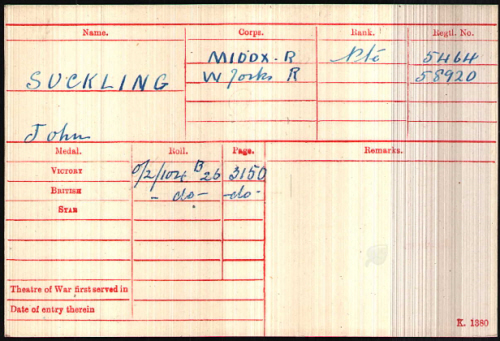 Name. Corps. Rank. Regtl. No.
MIDDX. R Pte 5464
SUCKLING W Yorks R 58920
John
Medal. Roll. Page. Remarks.
VICTORY O/2/104 B 26 3150
BRITISH - do - - do -
STAR
Theatre of War first served in
Date of entry therein
K. 1380